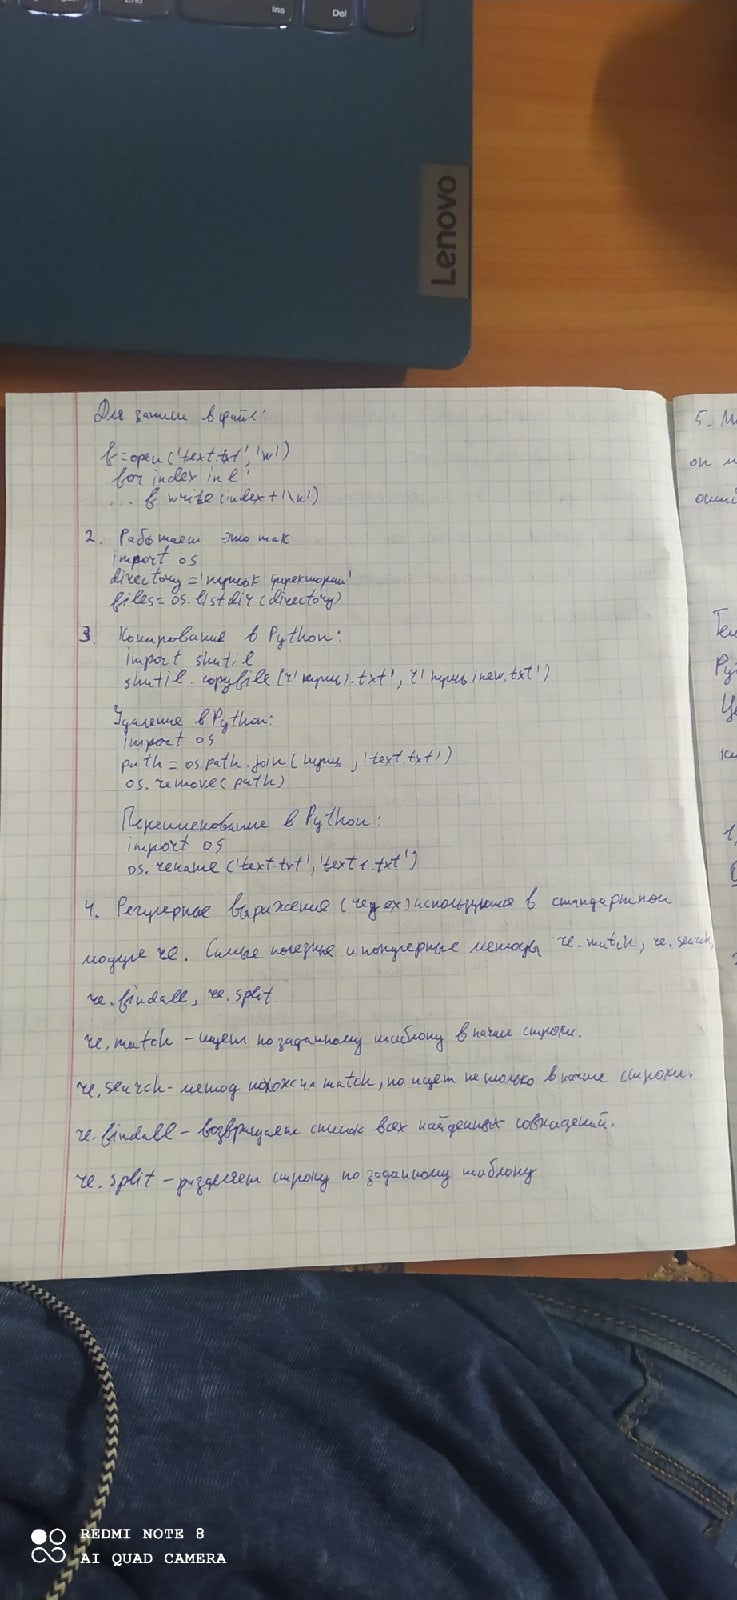 Ins
Del
Lenovo
Для записи в файл:
f=open('text.txt','w')
for index in l:
... f.write(index+'\n')
2. Работает это так
import os
directory='путь к директории'
files=os.listdir(directory)
3. Копирование в Python:
import shutil
shutil.copyfile(r'путь1.txt', r'путь/new.txt')
Удаление в Python:
import os
path=os.path.join(путь,'text.txt')
os.remove(path)
Переименование в Python:
import os
os.rename('text.txt','text1.txt')
4. Регулярные выражения (regex) используются в стандартном
модуле re. Самые полезные и популярные методы re.match, re.search,
re.findall, re.split
re.match - ищет по заданному шаблону в начале строки.
re.search - метод похож на match, но ищет не только в начале строки.
re.findall - возвращает список всех найденных совпадений.
re.split - разделяет строку по заданному шаблону
5.
он
REDMI NOTE 8
AI QUAD CAMERA